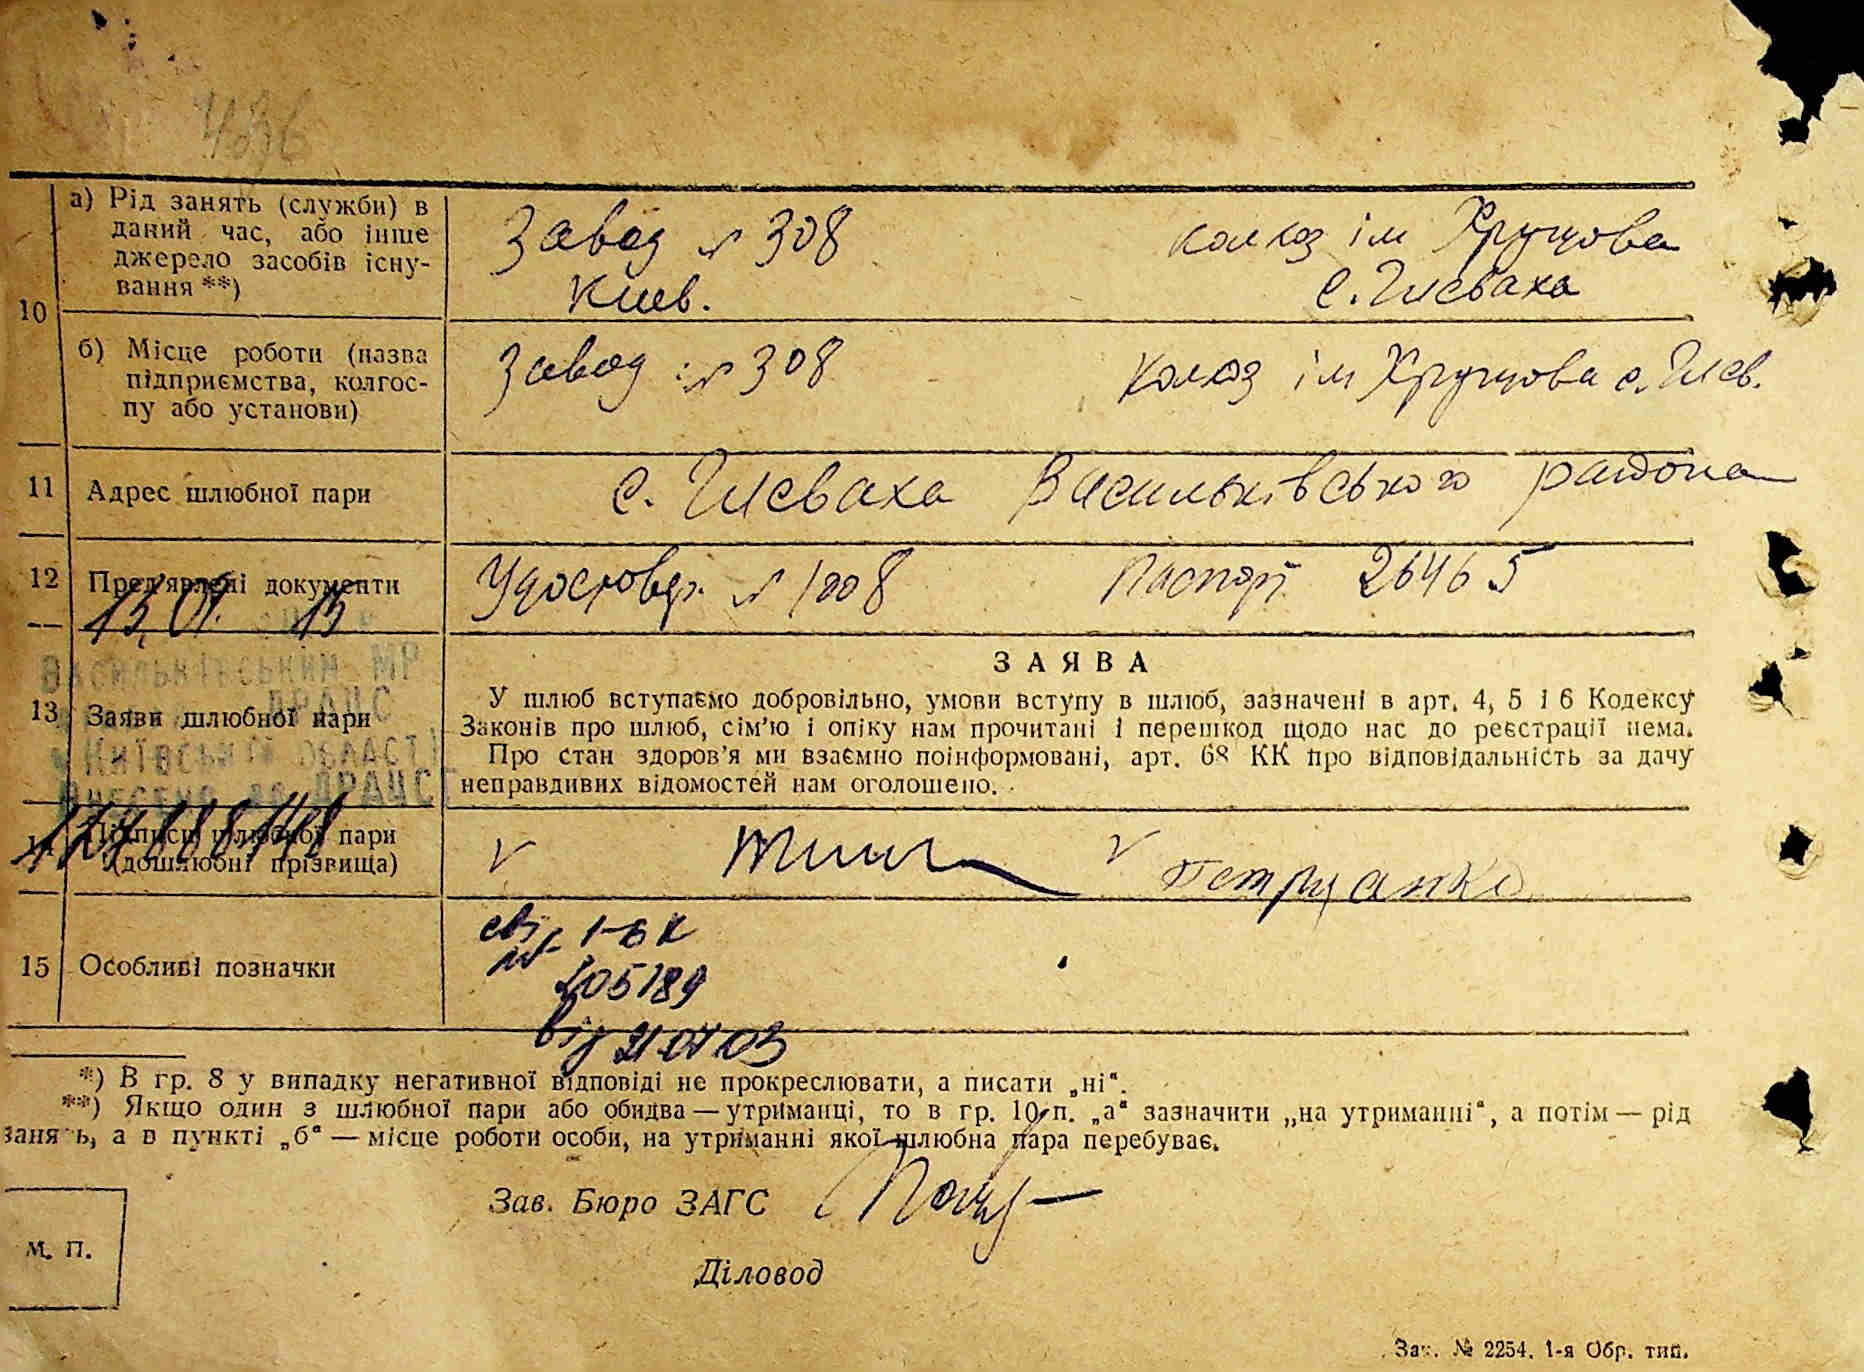 486
10
а) Рід занять (служби) в
даний час, або інше
джерело засобів існу-
вання **)
Завод № 308
Киев.
колхоз ім Хрущова
с. Глеваха
б) Місце роботи (назва
підприємства, колгос-
пу або установи)
Завод № 308
Колхоз ім Хрущова с. Глев.
11
Адрес шлюбної пари
с. Глеваха Васильківського района
12
Пред'явлені документи
Удостовер. № 1008
Паспорт 26465
13.01. 15
Васильківським МР
ДРАЦС
Київській області
ДРАЦС
13
Заяви шлюбної пари
ЗАЯВА
У шлюб вступаємо добровільно, умови вступу в шлюб, зазначені в арт. 4, 5 і 6 Кодексу
Законів про шлюб, сім'ю і опіку нам прочитані і перешкод щодо нас до реєстрації нема.
Про стан здоров'я ми взаємно поінформовані, арт. 68 КК про відповідальність за дачу
неправдивих відомостей нам оголошено.
14
Підписи шлюбної пари
(дошлюбні прізвища)
15
Особливі позначки
св.
№ 1-БК
105189
від 21 07 03
*) В гр. 8 у випадку негативної відповіді не прокреслювати, а писати „ні“.
**) Якщо один з шлюбної пари або обидва — утриманці, то в гр. 10 п. „а“ зазначити „на утриманні“, а потім — рід
занять, а в пункті „б“ — місце роботи особи, на утриманні якої шлюбна пара перебуває.
Зав. Бюро ЗАГС
М. П.
Діловод
Зак. № 2254. 1-я Обр. тип.